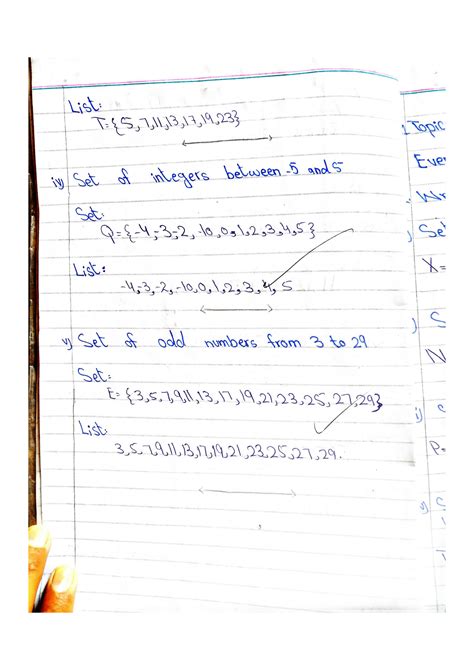 List:
T={5,7,11,13,17,19,23}
iv) Set of integers between -5 and 5
Set:
Q={-4,-3,-2,-10,0,1,2,3,4,5}
List:
-4,-3,-2,-10,0,1,2,3,4,5
v) Set of odd numbers from 3 to 29
Set:
E={3,5,7,9,11,13,17,19,21,23,25,27,29}
List:
3,5,7,9,11,13,17,19,21,23,25,27,29.
Topic
Eve
Se
X=
S
N
P=